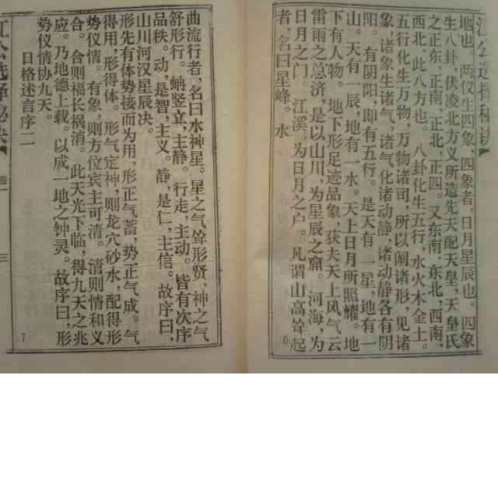 江公选择秘诀
地也。两仪生四象，四象者，日月星辰也。四象
生八卦，伏凌北方义所造先天配天皇，天皇氏
之正东，正南，正北，正四。又东南，东北，西南，
西北，此八方也。八卦化生五行，水火木金土。
五行化生万物，万物诸司，所以阐诸形，见诸
象，诸象生诸气，诸气化诸动静，诸动静各有阴
阳。有阴阳，即有五行。是天有一星，地有一
山。天有辰，地有一水。天上日月所照耀。地
下有人物。地下形足迹品象，获夫天上风气云
雷雨之总济，是以山川，为星辰之窟，河海，为
日月之门。江溪，为日月之户。凡谓山高耸起
者，名曰星峰。水
6
曲流行者，名曰水神星。星之气，耸形贤，神之气
舒形行。蛹竖立，主静。行走，主动。皆有次序
品秩。动，是智，主义。静，是仁，主信。故序曰，
山川河汉星辰决。
形先有体势接而为用，形正气蓄，势正气成。气
得用，形得体。形气定神，则龙穴砂水，配得形
势仪情。有象，则方位宾主可清。清则情和义
合。合则福长祸消，此天光下临，得九天之兆
应。乃地德上载。以成一地之钟灵。故序曰，形
势仪情协九天。
日格述言序二
7
江公选择秘诀
三